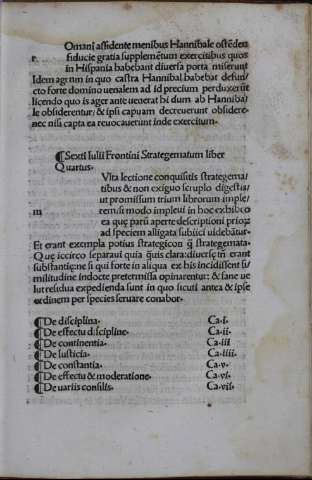 Omani assidente menibus Hannibale ostẽdẽ
r. fiducie gratia supplemẽtum exercitibus quos
in Hispania habebant diversa porta miserunt
Idem agrum in quo castra Hannibal habebat defun/
cto forte domino uenalem ad id precium perduxerũt
licendo quo is ager ante uenerat bidum ab Hanniba/
le obsiderentur: & ipsi capuam decreuerunt obsidere·
nec nisi capta ea reuocauerunt inde exercitum·
¶Sexti Iulii Frontini Strategematum liber
Quartus·
Vlta lectione conquisitis strategema/
tibus & non exiguo scruplo digestis
ut promissum trium librorum imple/
m remsi modo impleui in hoc exhibeo
ea que parũ aperte descriptioni prioꝝ
ad speciem alligata subiici uidebãtur·
Et erant exempla potius strategicon ꝗ̃ strategemata·
Que iccirco separaui quia quis clara: diuersę tñ erant
substãtigne si qui forte in aliqua ex his incidissent si/
militudine indocte pretermissa opinarentur: & sane ue
lut residua expedienda sunt in quo sicuti antea & ipse
ordinem per species seruare conabor·
¶De disciplina· Ca·i·
¶De effectu discipline· Ca·ii·
¶De continentia· Ca·iii
¶De Iusticia· Ca·iiii·
¶De constantia· Ca·v·
¶De effectu & moderatione· Ca·vi·
¶De uariis consilis· Ca·vii·